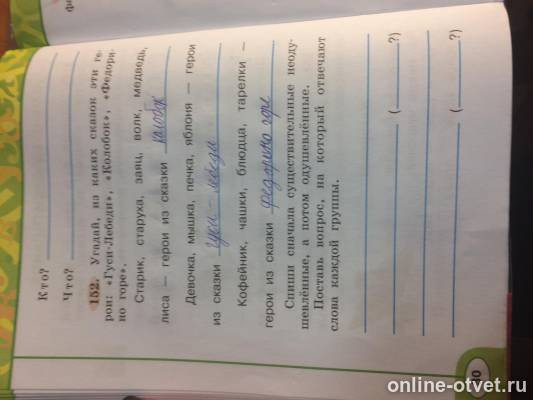 Кто?
Что?
152. Угадай, из каких сказок эти ге-
рои: «Гуси-Лебеди», «Колобок», «Федори-
но горе».
Старик, старуха, заяц, волк, медведь,
лиса — герои из сказки колобок
Девочка, мышка, печка, яблоня — герои
из сказки гуси-лебеди
Кофейник, чашки, блюдца, тарелки —
герои из сказки федорино горе
Спиши сначала существительные неоду-
шевлённые, а потом одушевлённые.
Поставь вопрос, на который отвечают
слова каждой группы.
( ?)
( ?)
online-otvet.ru